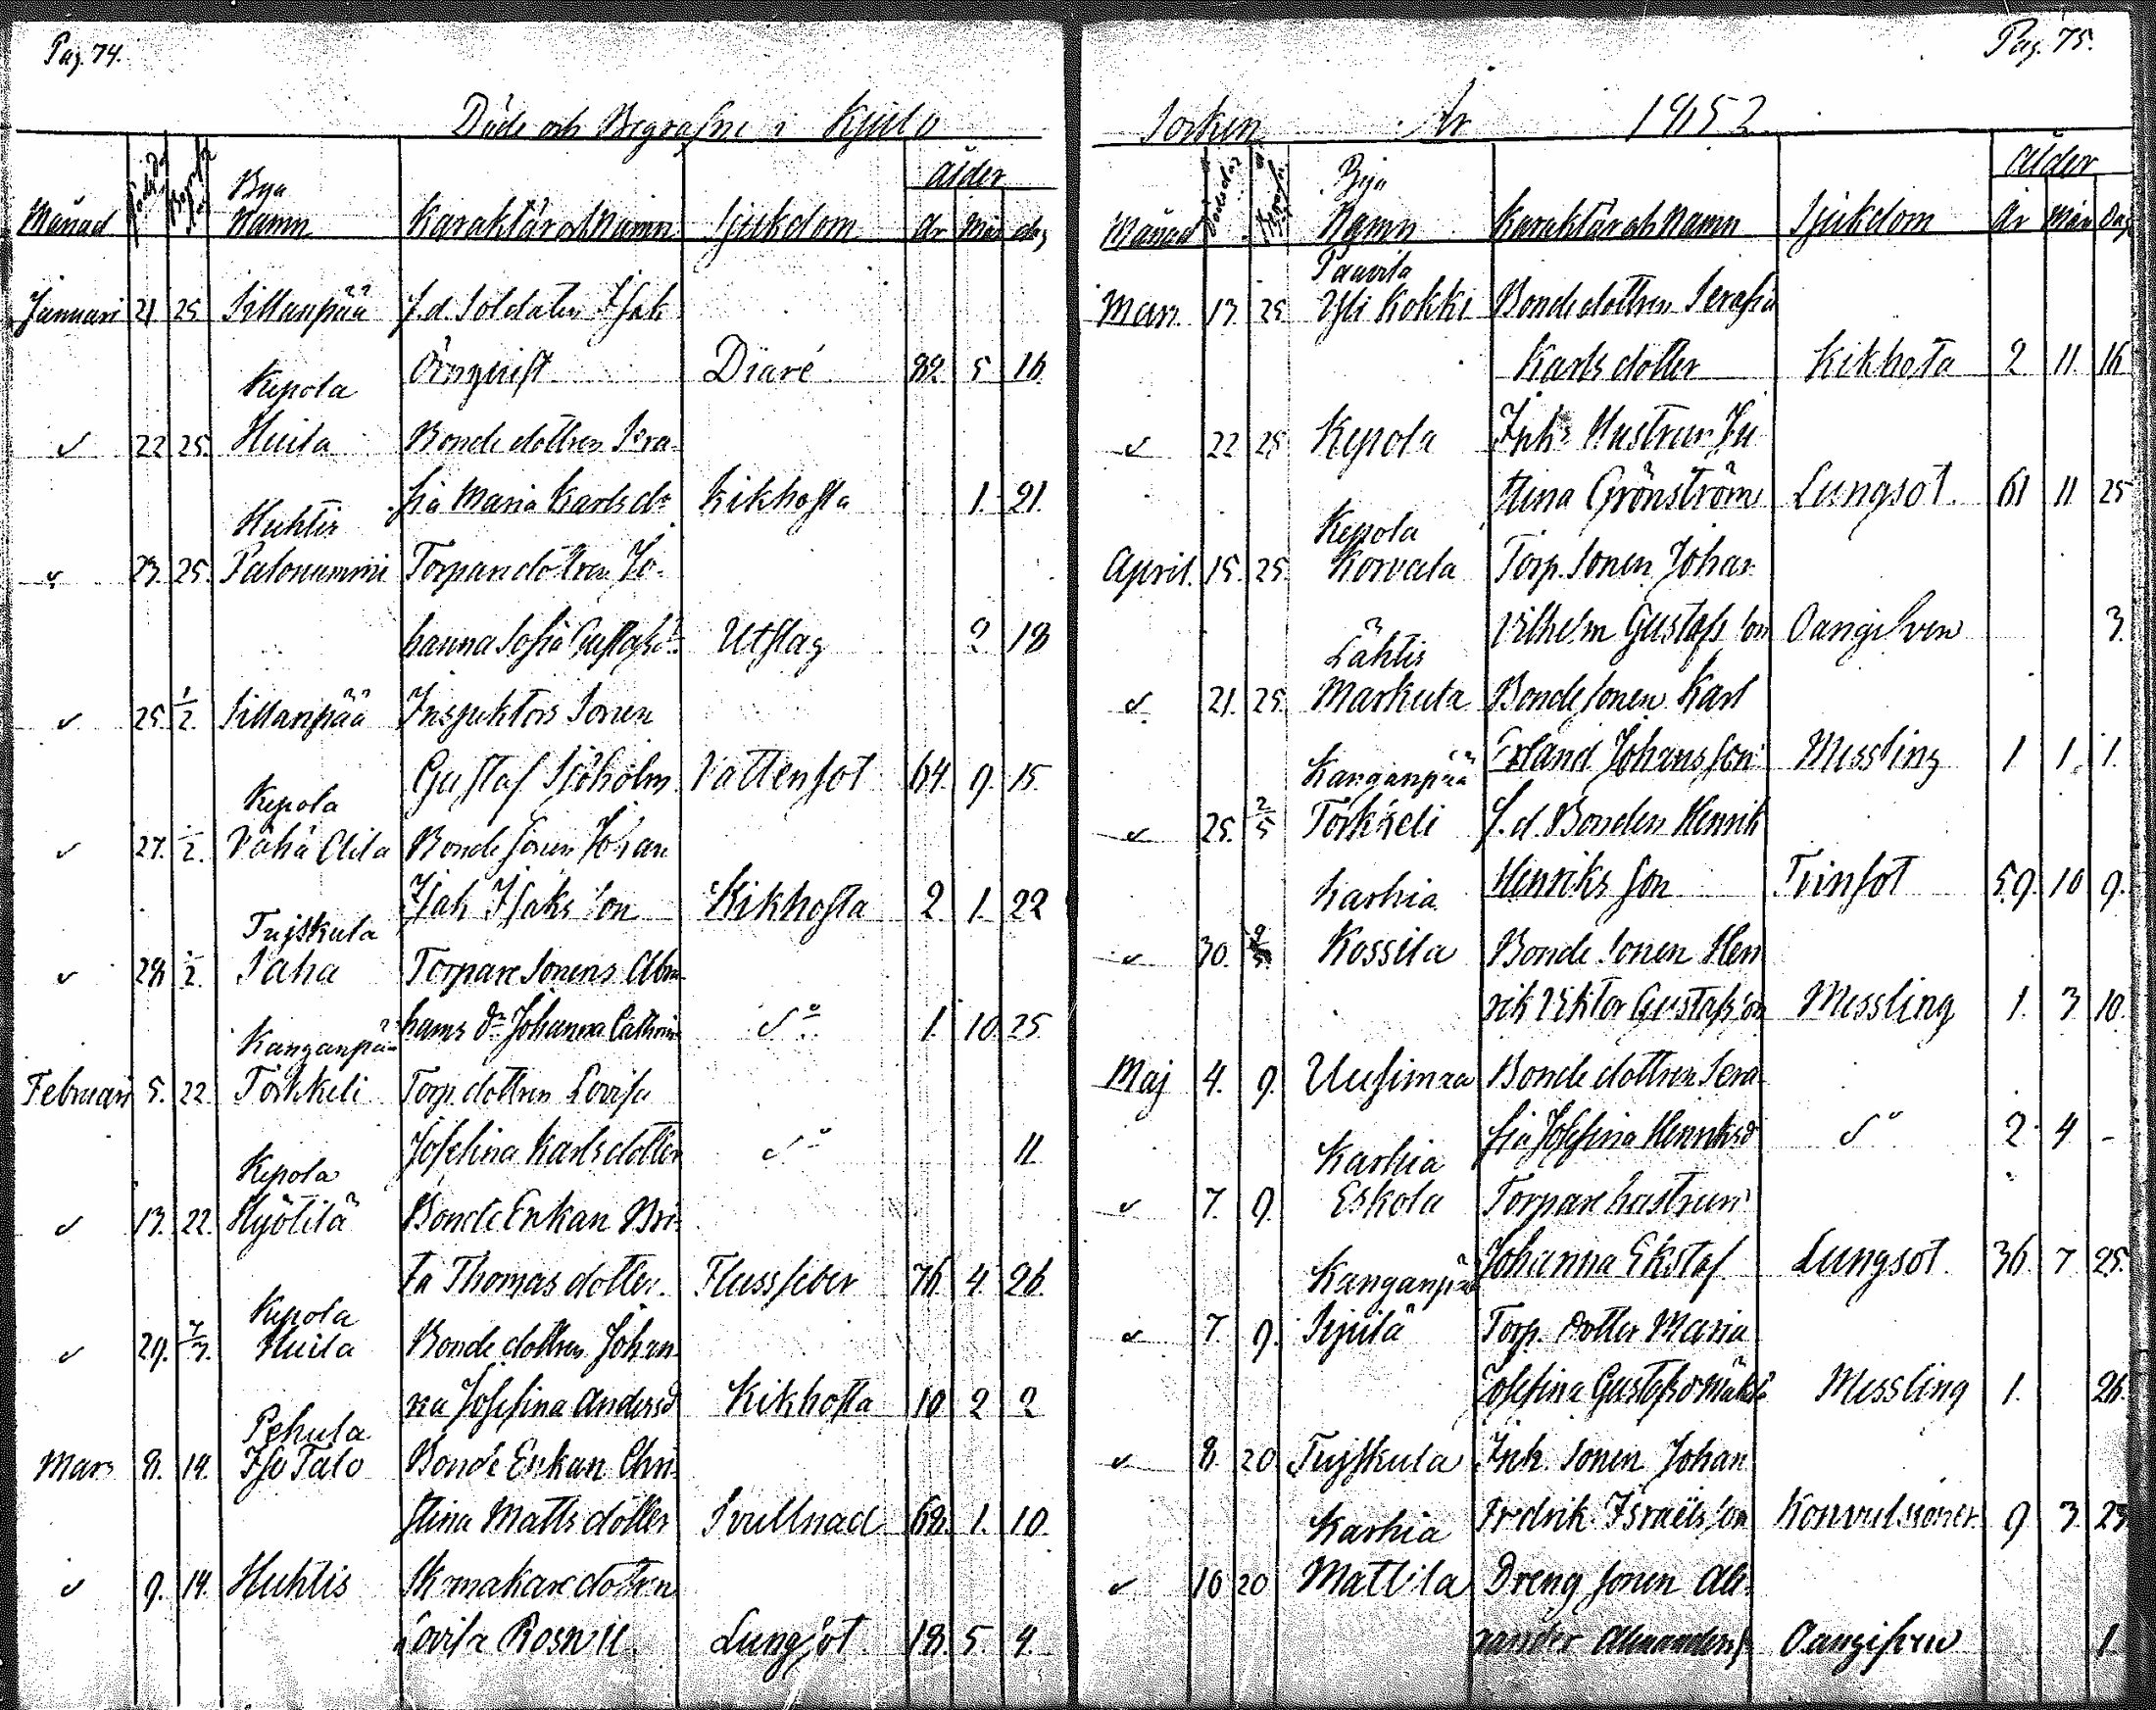 Pag. 74.
Döde och Begrafne i Kjulo
Månad Bya Namn Karaktär och Namn Sjukdom Ålder År Mån dag
Januari 21. 25 Sillanpää f.d. Soldaten Isak
Örnquist Diaré 82. 5 16.
Kepola
22 25. Huila Bonde dottren Sera-
fia Maria Karls dr Kikhosta 1. 21.
Huhtis
23. 25. Palonummi Torpare dottren Jo-
hanna Sofia Gustafsd. Utslag 2 18
25. 1/2. Sillanpää Inspektors Sonen
Gustaf Sjöholm Vattensot 64. 9. 15.
Kepola
27. 1/2. Vähä Olila Bonde sonen Johan
Isak Isaks son Kikhosta 2. 1. 22
Tujskula
28 1/2. Saha Torpare Sonens Abra-
hams dr Johanna Cathrina do 1. 10. 25
Kanganpää
Februari 5. 22. Torkkeli Torp. dottren Lovisa
Josefina Karls dotter do 11
Kepola
13. 22. Hyötilä Bonde Enkan Bri-
ta Thomas dotter. Flussfeber 76. 4. 26.
Kepola
29. 7/3. Huila Bonde dottren Johan-
na Josefina Andersd Kikhosta 10 2 2
Pehula
Mars 8. 14. Iso Talo Bonde Enkan Chri-
stina Matts dotter Svullnad 68. 1. 10.
9. 14. Huhtis Skomakare dottren
Lovisa Rosnell. Lungsot 18. 5. 4.
Pag. 75.
Socken År 1852
Månad Dödsdag Bya Namn Karaktär och Namn Sjukdom Ålder År Mån Dag
Paavila
Mars 13. 25 Yli Kokki Bonde dottren Serafia
Karls dotter Kikhosta 2 11. 16
22 25 Kepola Inhs Hustrun Ju
stina Grönström Lungsot. 61 11 25
Kepola
April. 15. 25. Korvala Torp. Sonen Johan
Vilhelm Gustafs son Oangifven 3.
Lähtis
21. 25. Markula Bonde sonen Karl
Erland Johans son Messling 1 1. 1.
Kanganpää
25. 2/5 Torkkeli f.d. Bonden Henrik
Henriks son Tvinsot 59. 10 9.
Karhia
30. 9/5. Kossila Bonde Sonen Hen
rik Viktor Gustafs son Messling 1. 3 10.
Maj 4. 9. Uusimaa Bonde dottren Sera-
fia Josefina Henriksd do 2. 4 -
Karhia
7. 9. Eskola Torpare hustrun
Johanna Ekstaf Lungsot. 36. 7 25.
Kanganpää
7. 9. Torp. dotter Maria
Josefina Gustafsd Messling 1. 26.
8 20. Tujskula Inh. Sonen Johan
Fredrik Israels son Konvulsioner. 9 3. 25
Karhia
10 20 Mattila Dreng sonen Ale-
xander Oangifven 1.